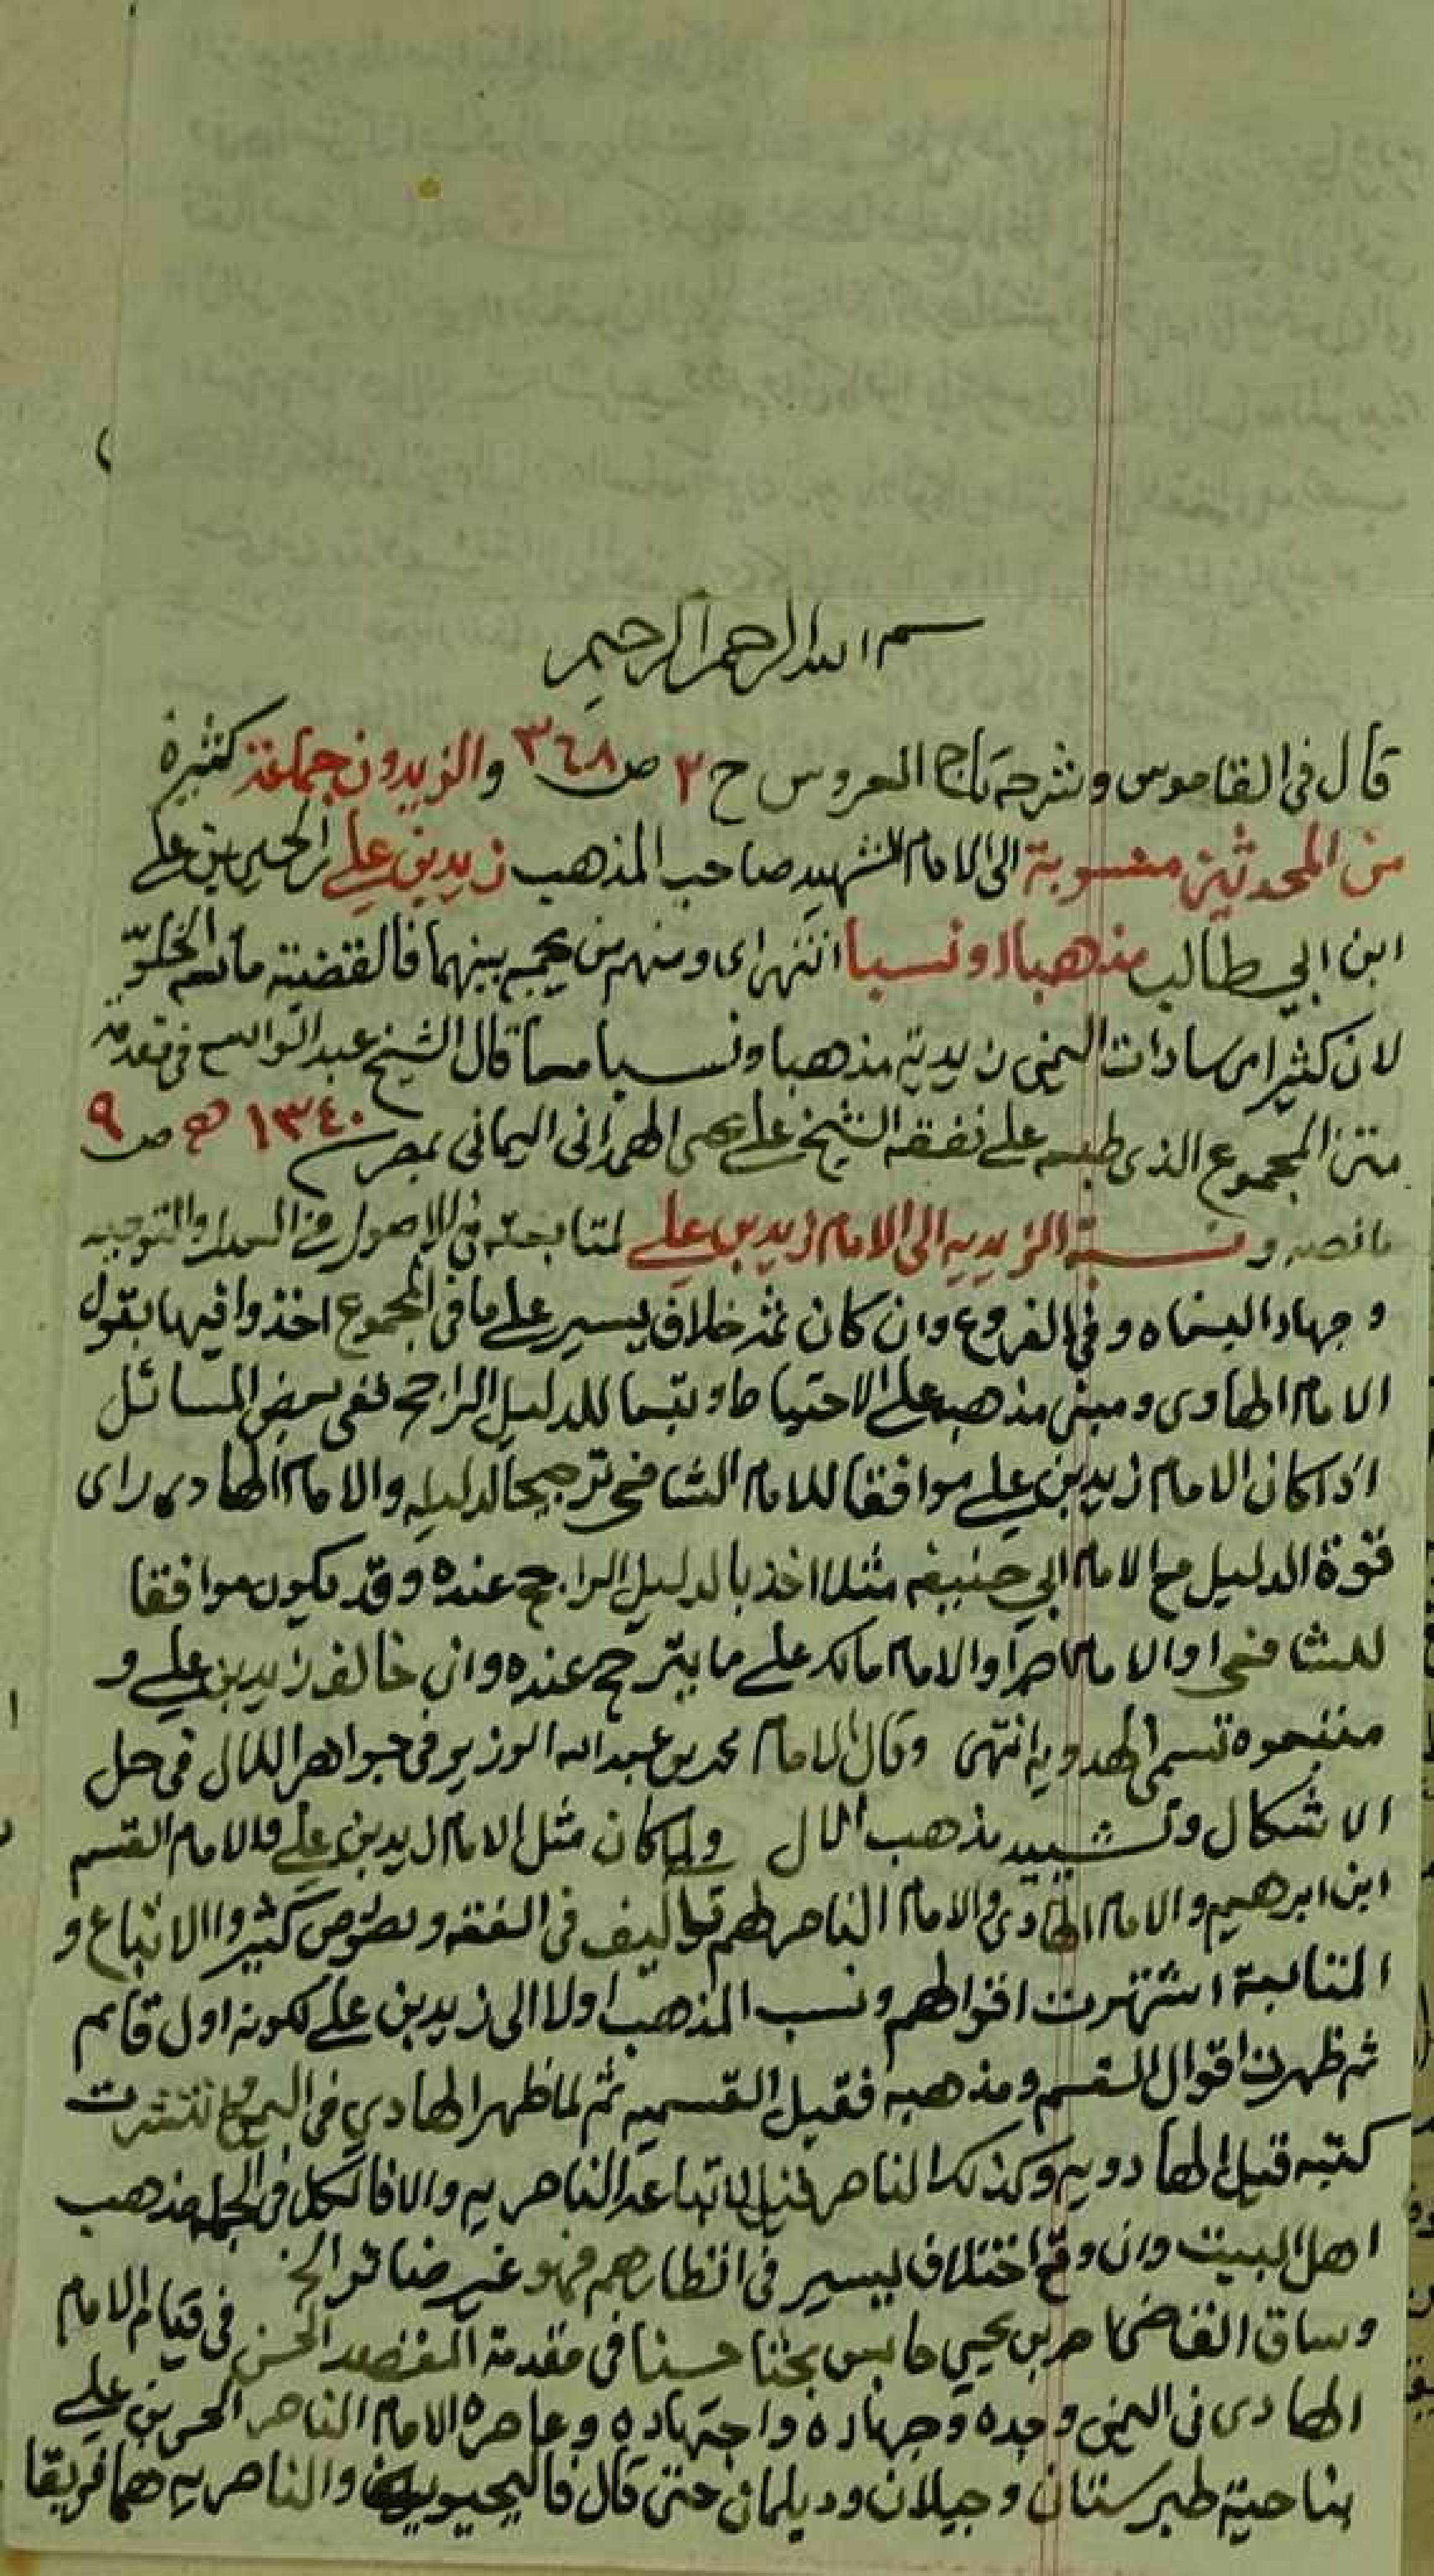 بسم الله الرحمن الرحيم
قال في القاموس وشرحه تاج العروس ج ٢ ص ٣٦٨ والزيديون جماعة كثيرة
من المحدثين منسوبة الى الامام الشهيد صاحب المذهب زيد بن علي بن الحسين بن علي
ابن ابي طالب مذهبا او نسبا انتهى اي ومنهم من يجمع بينهما فالقضية مانعة الخلو
لان كثيرا من سادات اليمن زيدية مذهبا ونسبا معا قال الشيخ عبد الواسع في مقدمة
متن المجموع الذي طبعه على نفقة الشيخ علي يحيى الهمداني اليماني بمصر سنة ١٣٤٠ هـ ص ٩
ما نصه ونسبة الزيديه الى الامام زيد بن علي لمتابعته في الاصول من العدل والتوحيد
وجهاد البغاه وفي الفروع وان كان ثمة خلاف يسير على ما في المجموع اخذوا فيها بقول
الامام الهادي ومبنى مذهبه على الاحتياط وتبعا للدليل الراجح ففي بعض المسائل
اذا كان الامام زيد بن علي موافقا للامام الشافعي ترجيحا لدليله والامام الهادي راى
قوة الدليل مع الامام ابي حنيفه مثلا اخذ بالدليل الراجح عنده وقد يكون موافقا
للشافعي او الامام احمد او الامام مالك على ما يترجح عنده وان خالف زيد بن علي و
متبعوه تسمى الهدويه انتهى وقال الامام محمد بن عبد الله الوزير في جواهر اللال في حل
الاشكال وتشييد مذهب الال ولما كان مثل الامام زيد بن علي والامام القسم
ابن ابرهيم والامام الهادي والامام الناصر لهم تواليف في الفقه ونصوص كثيروا الاتباع و
المتابعة اشتهرت اقوالهم ونسب المذهب اولا الى زيد بن علي لكونه اول قائم
ثم ظهرت اقوال القسم ومذهبه فقيل القسميه ثم لما ظهر الهادي في اليمن وانتشرت
كتبه قيل الهادويه وكذلك الناصر قيل لاتباعه الناصريه والا فالكل في الجمله مذهب
اهل البيت وان وقع اختلاف يسير في انظارهم فهو غير ضائر الخ
وساق القاضي احمد بن يحيى حابس بحثا حسنا في مقدمة المقصد الحسن في قيام الامام
الهادي في اليمن وجده وجهاده واجتهاده وعاصره الامام الناصر الحسن بن علي
بناحية طبرستان وجيلان وديلمان حتى قال فاليحيويه والناصريه هما فريقا